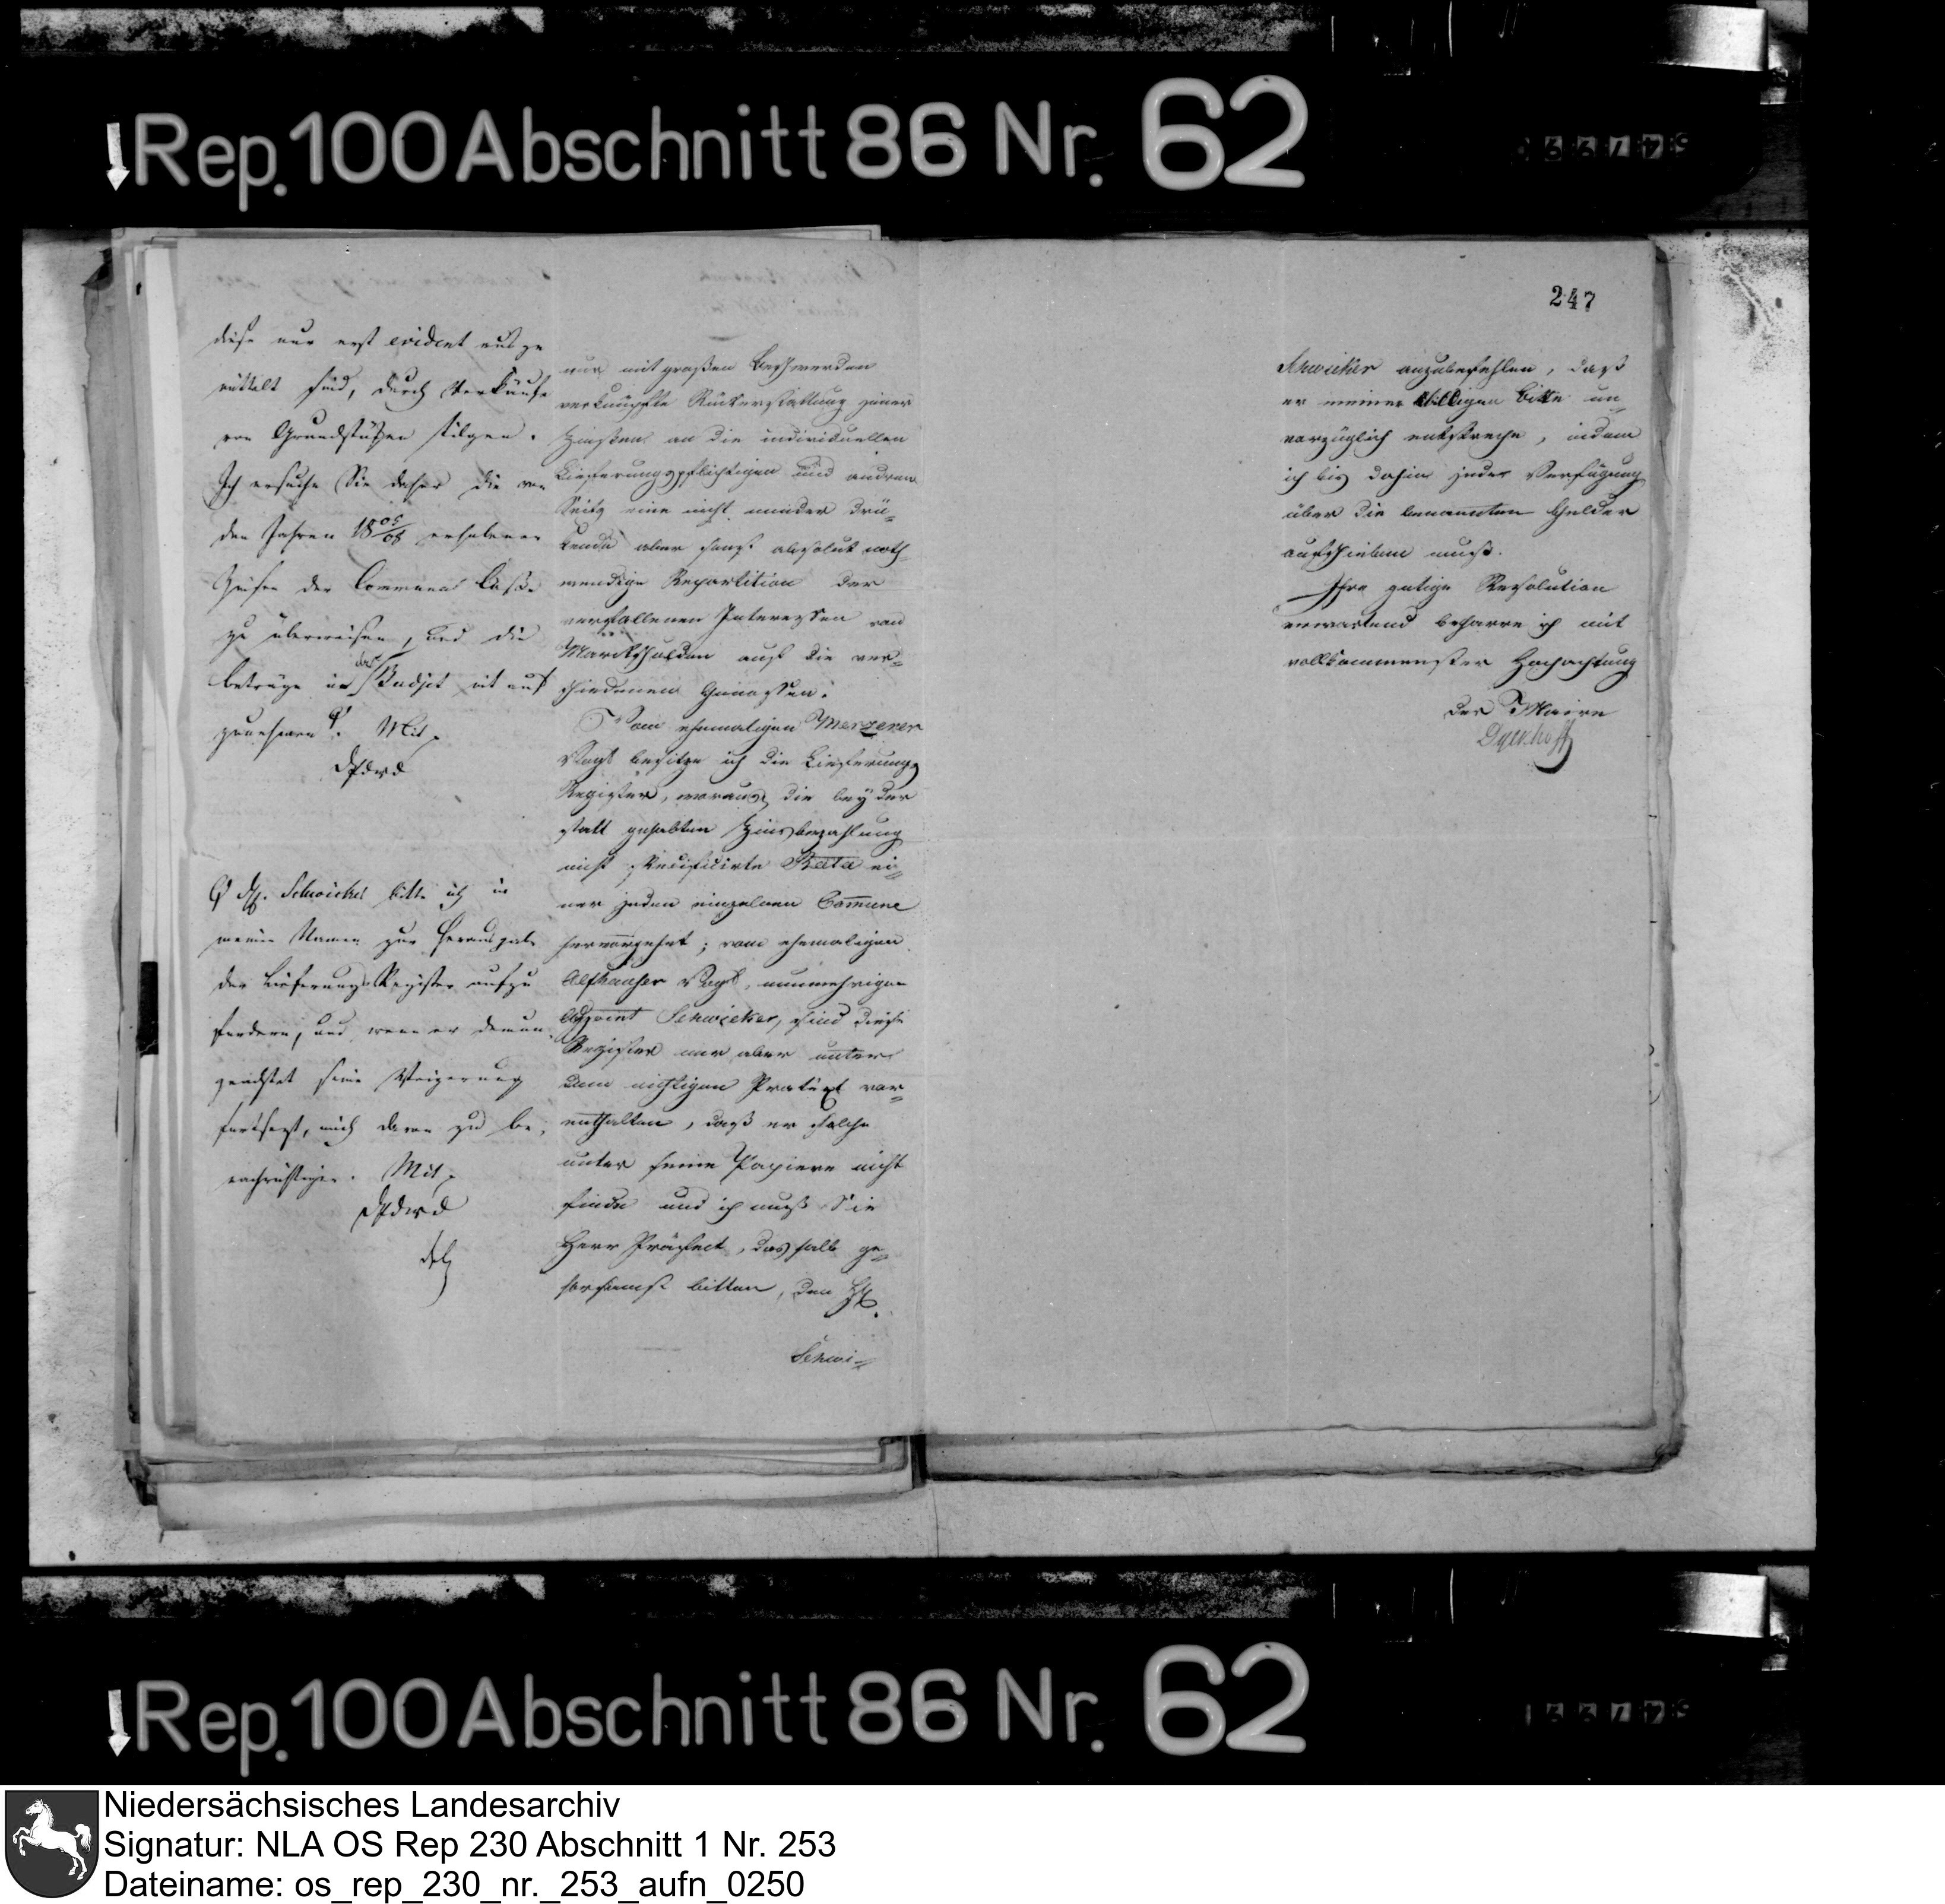 Rep. 100 Abschnitt 86 Nr. 62
247
diese nur erst evident ausge
mittelt sind, durch Verkäufe
von Grundstüken tilgen.
Ich ersuche Sie daher die von
den Jahren 18 05/08 erhobenen
Zinsen der Commune Casse
zu überweisen, und die
Beträge in das Budjet mit auf
zunehmen. Mit
Q H. Schwicker bitte ich in
meinem Namen zur Herausgabe
der Lieferungs Register aufzu
fordern, und wenn er demun
geachtet seine Weigerung
fortsezt, mich davon zu be
nachrichtigen. Mit
nur mit großen Beschwerden
verknüpfte Rückerstattung jener
Zinsen an die individuellen
Lieferungspflichtigen und andrer
Seits eine nicht minder drü-
kende aber sonst absolut noth
wendige Repartition der
verfallenen Interessen von
Markschulden auf die ver-
schiedenen Genossen.
Vom ehemaligen Merzener
Vogt besitze ich die Lieferungs
Register, woraus die bey der
statt gehabten Zinsbezahlung
nicht specificirte Rata ei-
ner jeden einzelnen Commune
hervorgehet; vom ehemaligen
Alfhauser Vogt, nunmehrigen
Adjoint Schwicker, sind diese
Register mir aber unter
dem nichtigen Pratext vor-
enthalten, daß er solche
unter seine Papiere nicht
finde und ich muß Sie
Herr Präfect, deshalb ge-
horsamst bitten, den H.
Schwi-
Schwicker anzubefehlen, daß
er meiner billigen Bitte un
verzüglich entspreche, indem
ich bis dahin jeder Verfügung
über die benannten Gelder
aufschieben muß.
Ihre gütige Resolution
erwartend beharre ich mit
vollkommenster Hochachtung
Der Maire
Dyckhoff
Rep. 100 Abschnitt 86 Nr. 62
Niedersächsisches Landesarchiv
Signatur: NLA OS Rep 230 Abschnitt 1 Nr. 253
Dateiname: os_rep_230_nr._253_aufn_0250